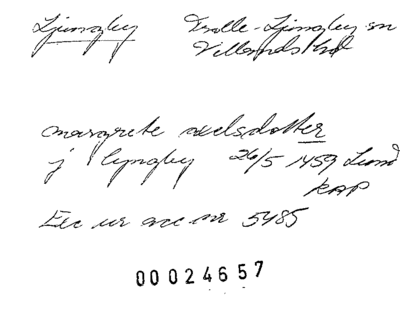 Ljungby Trolle-Ljungby sn
Villands hd
margrete axelsdotter
j lyngby 26/5 1459 Lund
RAP
Exc ur acc nr 5485
00024657